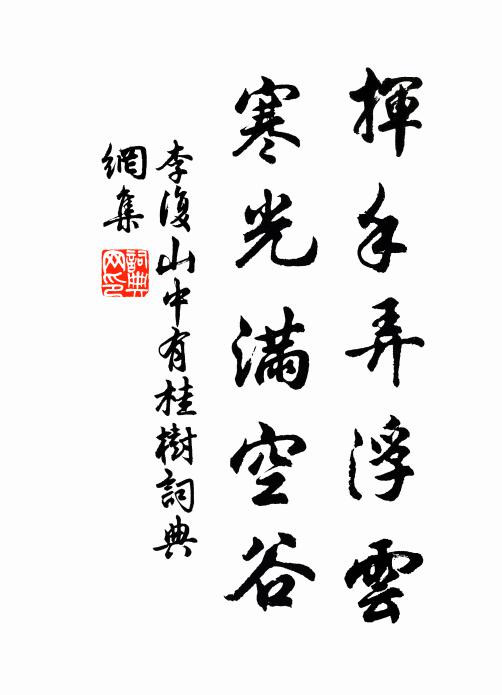 揮手弄浮雲
寒光滿空谷
李復山中有桂樹詞典
網集
詞典
网印